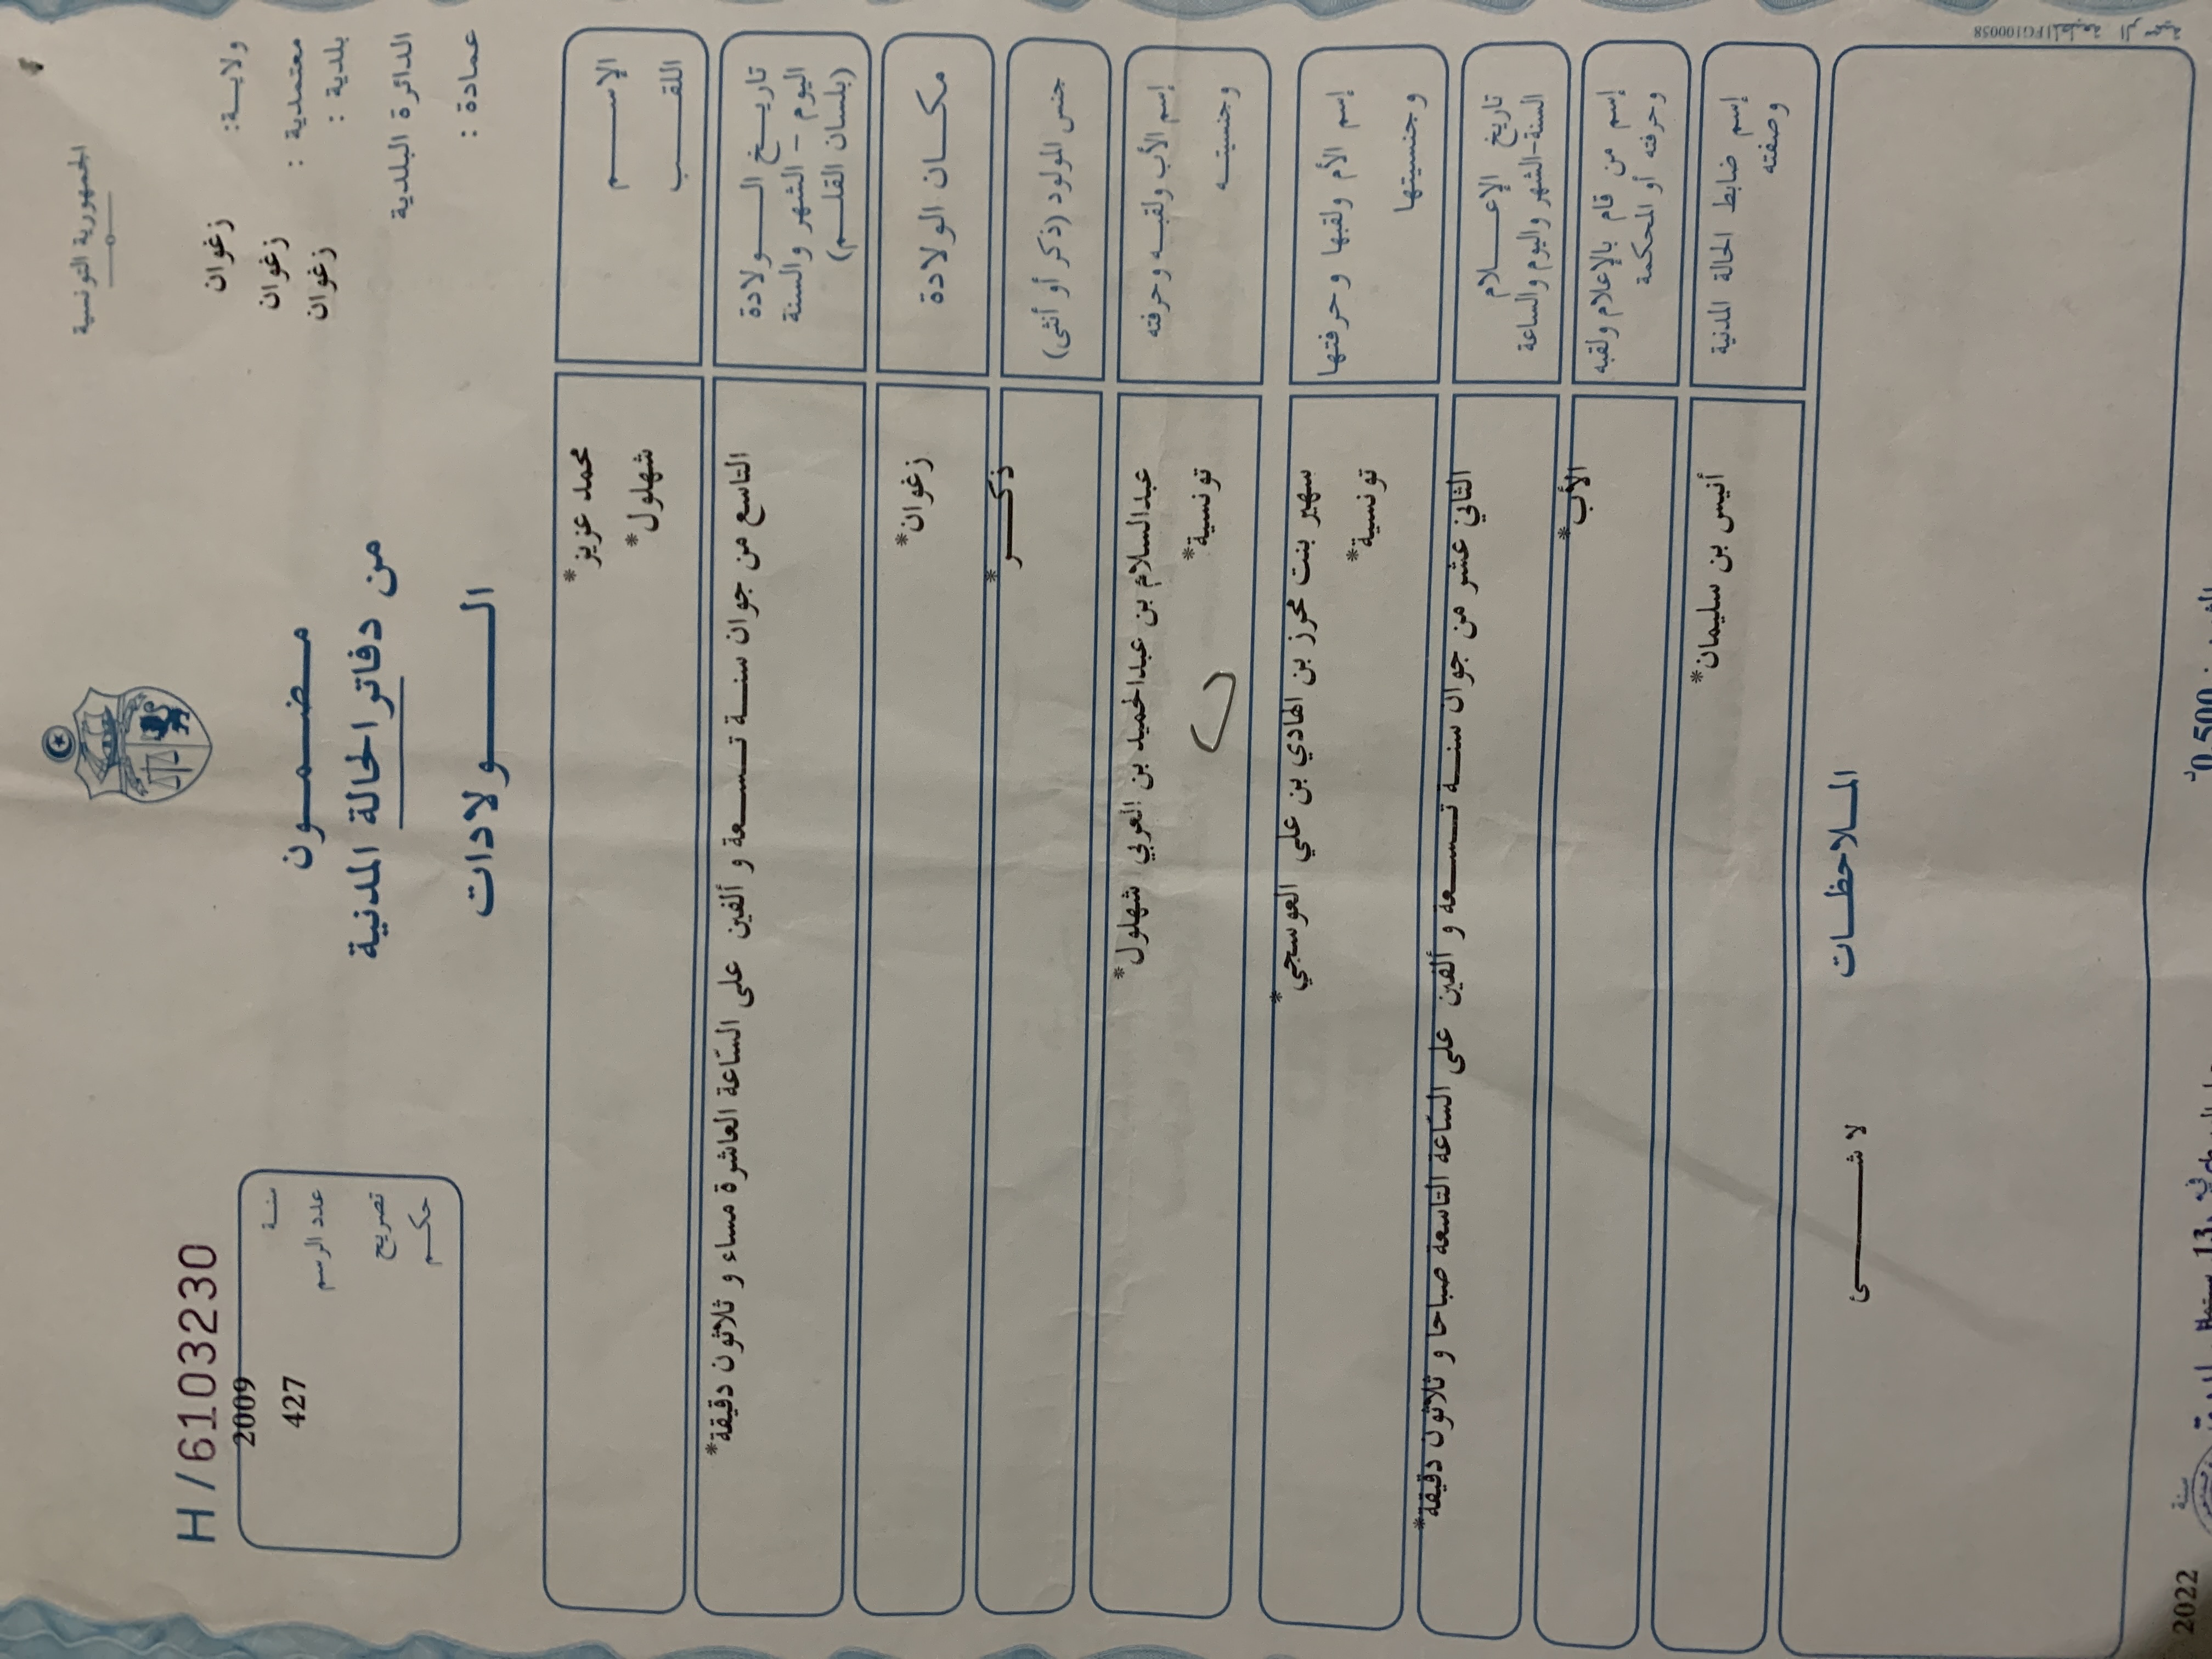 الجمهورية التونسية
ولايـــة: زغوان
معتمدية : زغوان
بلدية : زغوان
الدائرة البلدية
عمادة :
مـضـمــون
من دفاتر الحالة المدنية
الـــولادات
H/6103230
سنــة 2009
عدد الرسم 427
تصريح
حكــم
الإســـم محمد عزيز*
اللقـــب شهلول*
تاريــخ الـــولادة
اليوم - الشهر والسنة
(بلسان القلــم)
التاسع من جوان سنــة تــسعة و ألفين على السّاعة العاشرة مساء و ثلاثون دقيقة*
مكــان الولادة زغوان*
جنس المولود (ذكر أو أنثى) ذكــر*
إسم الأب ولقبــه وحرفته عبدالسلام بن عبدالحميد بن العربي شهلول*
وجنسيتــه تونسية*
إسم الأم ولقبها وحرفتها سهير بنت محرز بن الهادي بن علي العوسجي*
وجنسيتها تونسية*
تاريخ الإعـــلام
السنة-الشهر واليوم والساعة
الثاني عشر من جوان سنــة تــسعة و ألفين على السّاعة التاسعة صباحا و ثلاثون دقيقة*
إسم من قام بالإعلام ولقبه
وحرفته أو المحكمة
الأب*
إسم ضابط الحالة المدنية
وصفته
أنيس بن سليمان*
المــلاحظــات
لا شـــــئ
سنة 2022
0,500